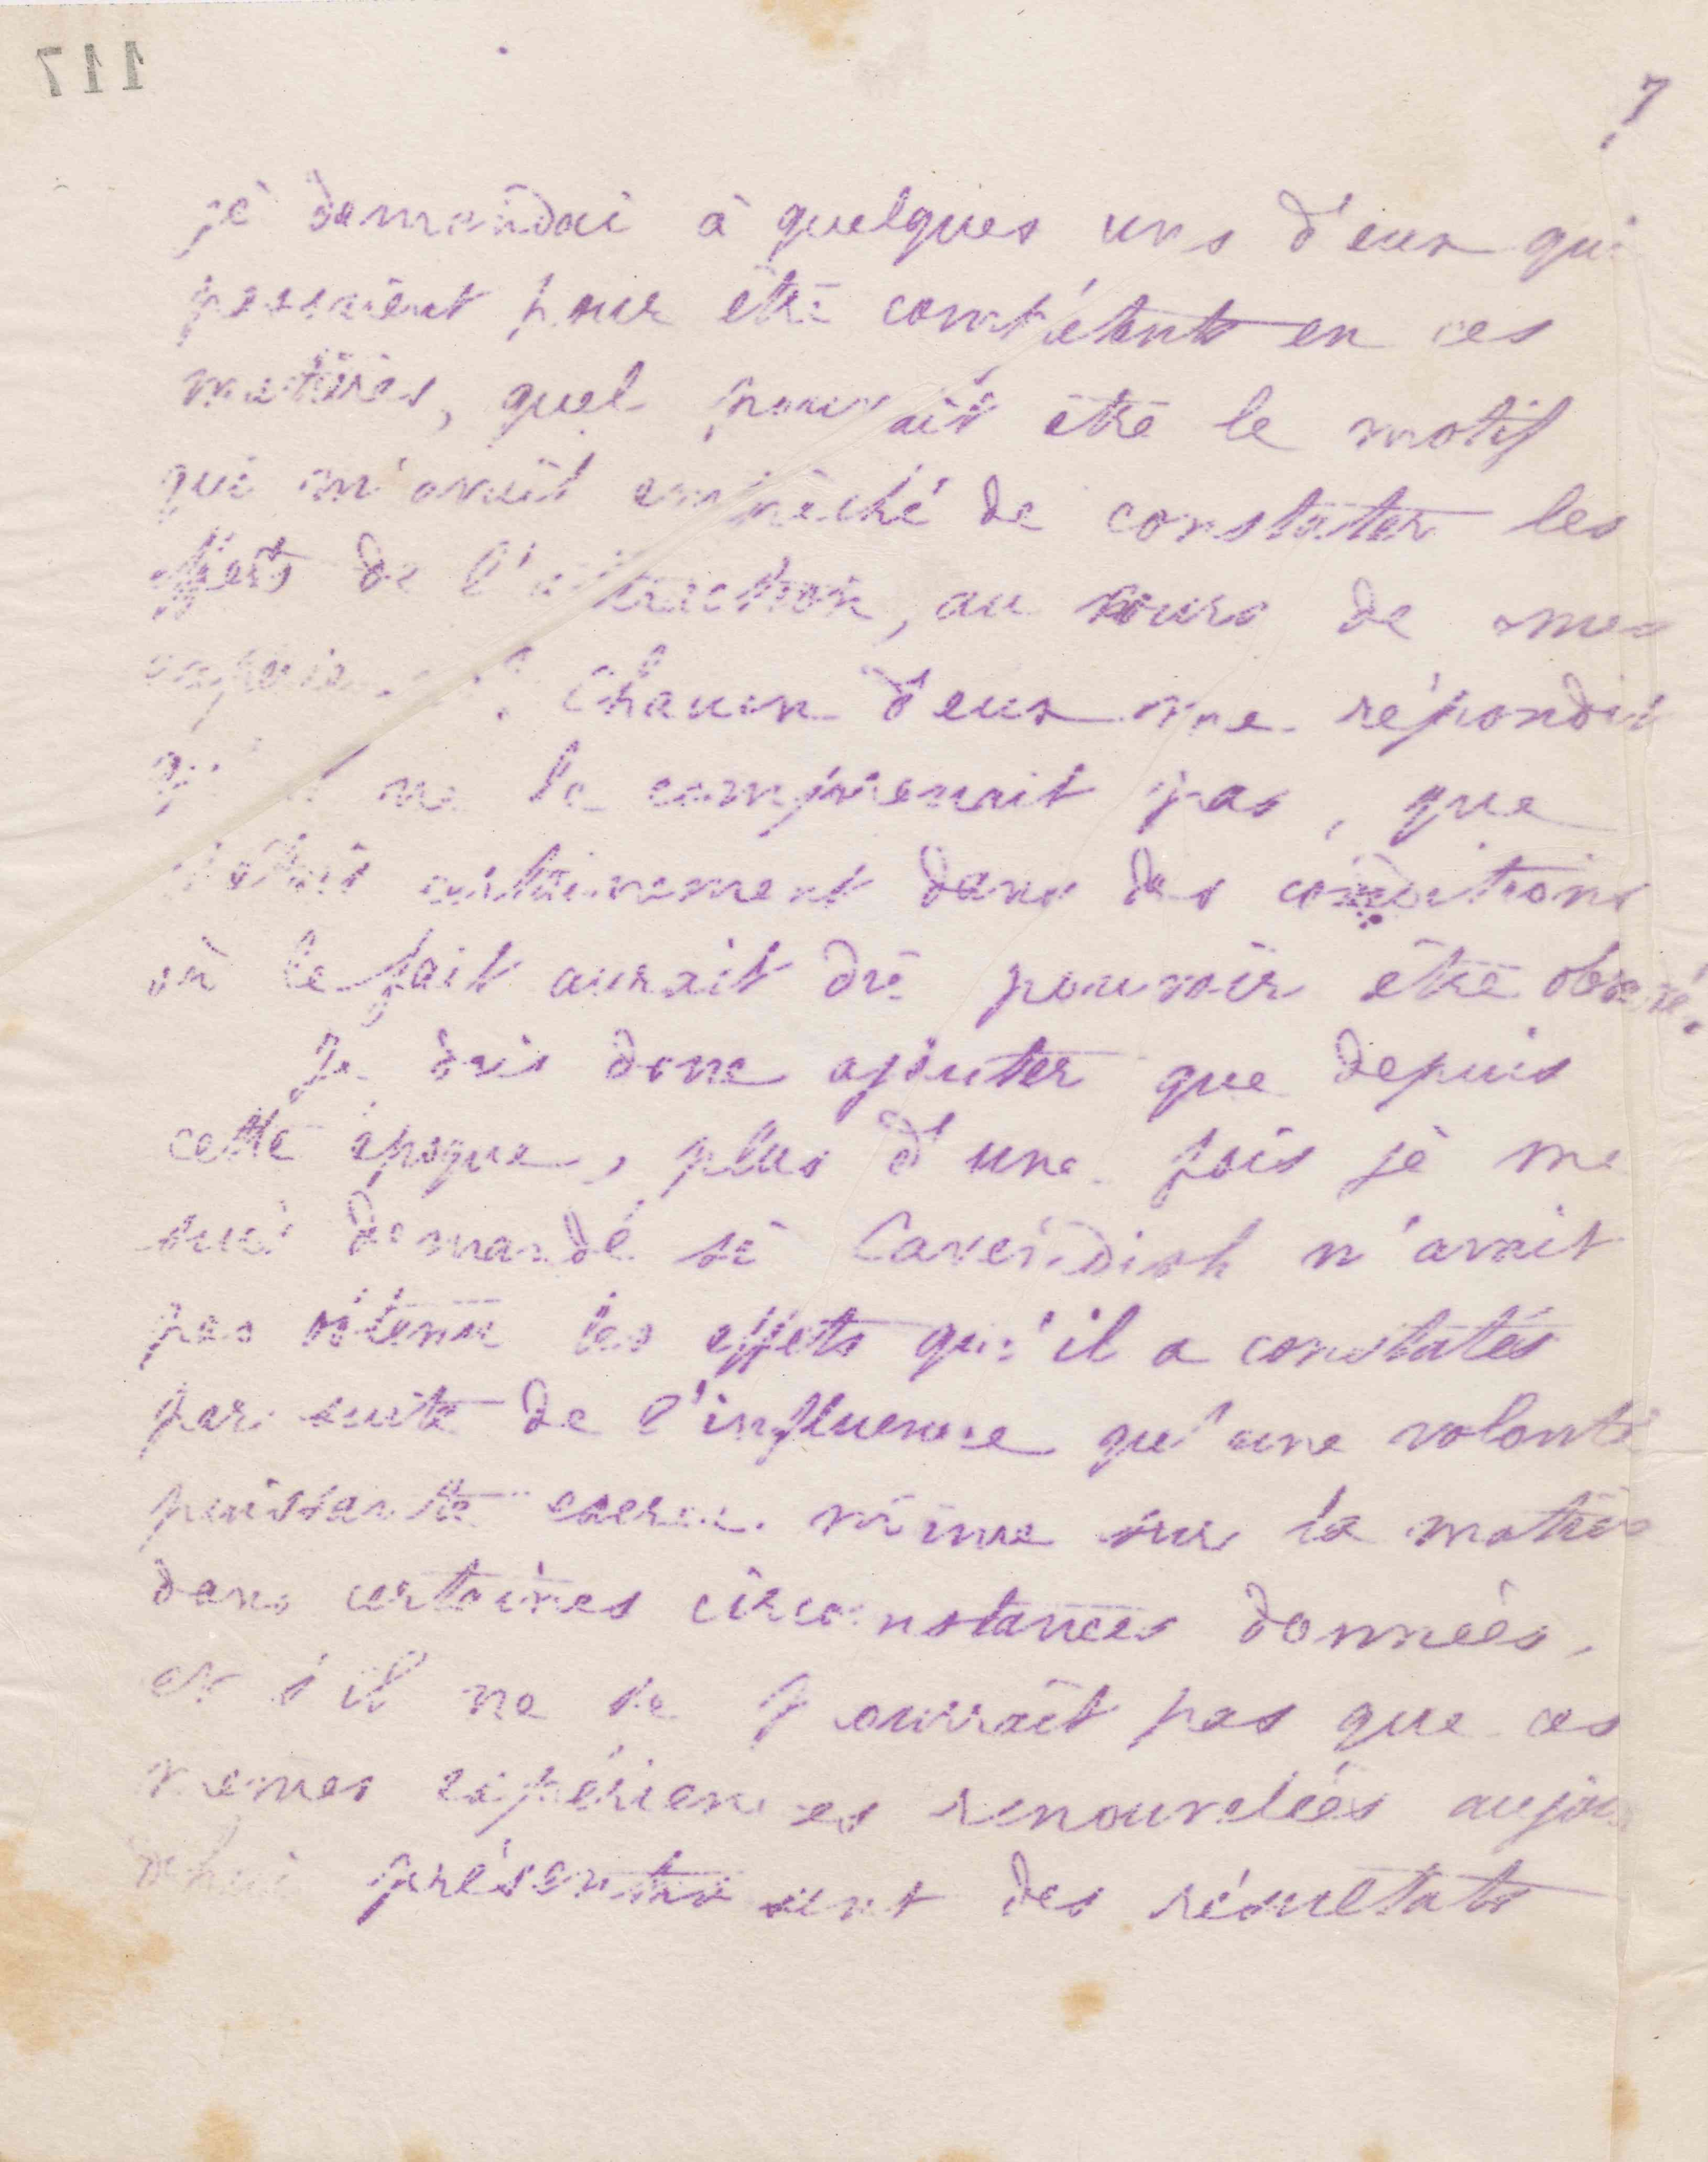 117
7
je demandai à quelques uns d'eux qui
passaient pour être compétents en ces
matières, quel pouvait être le motif
qui m'avait empêché de constater les
effets de l'attraction, au cours de mes
Chacun d'eux me répondit
ne le comprenait pas, que
certainement dans des conditions
où le fait aurait dû pouvoir être observé.
Je dois donc ajouter que depuis
cette époque, plus d'une fois je me
suis demandé si Cavendish n'avait
pas obtenu les effets qu'il a constatés
par suite de l'influence qu'une volonté
puissante exerce même sur la matière
dans certaines circonstances données,
et s'il ne se pourrait pas que ces
mêmes expériences renouvelées aujour
présentassent des résultats